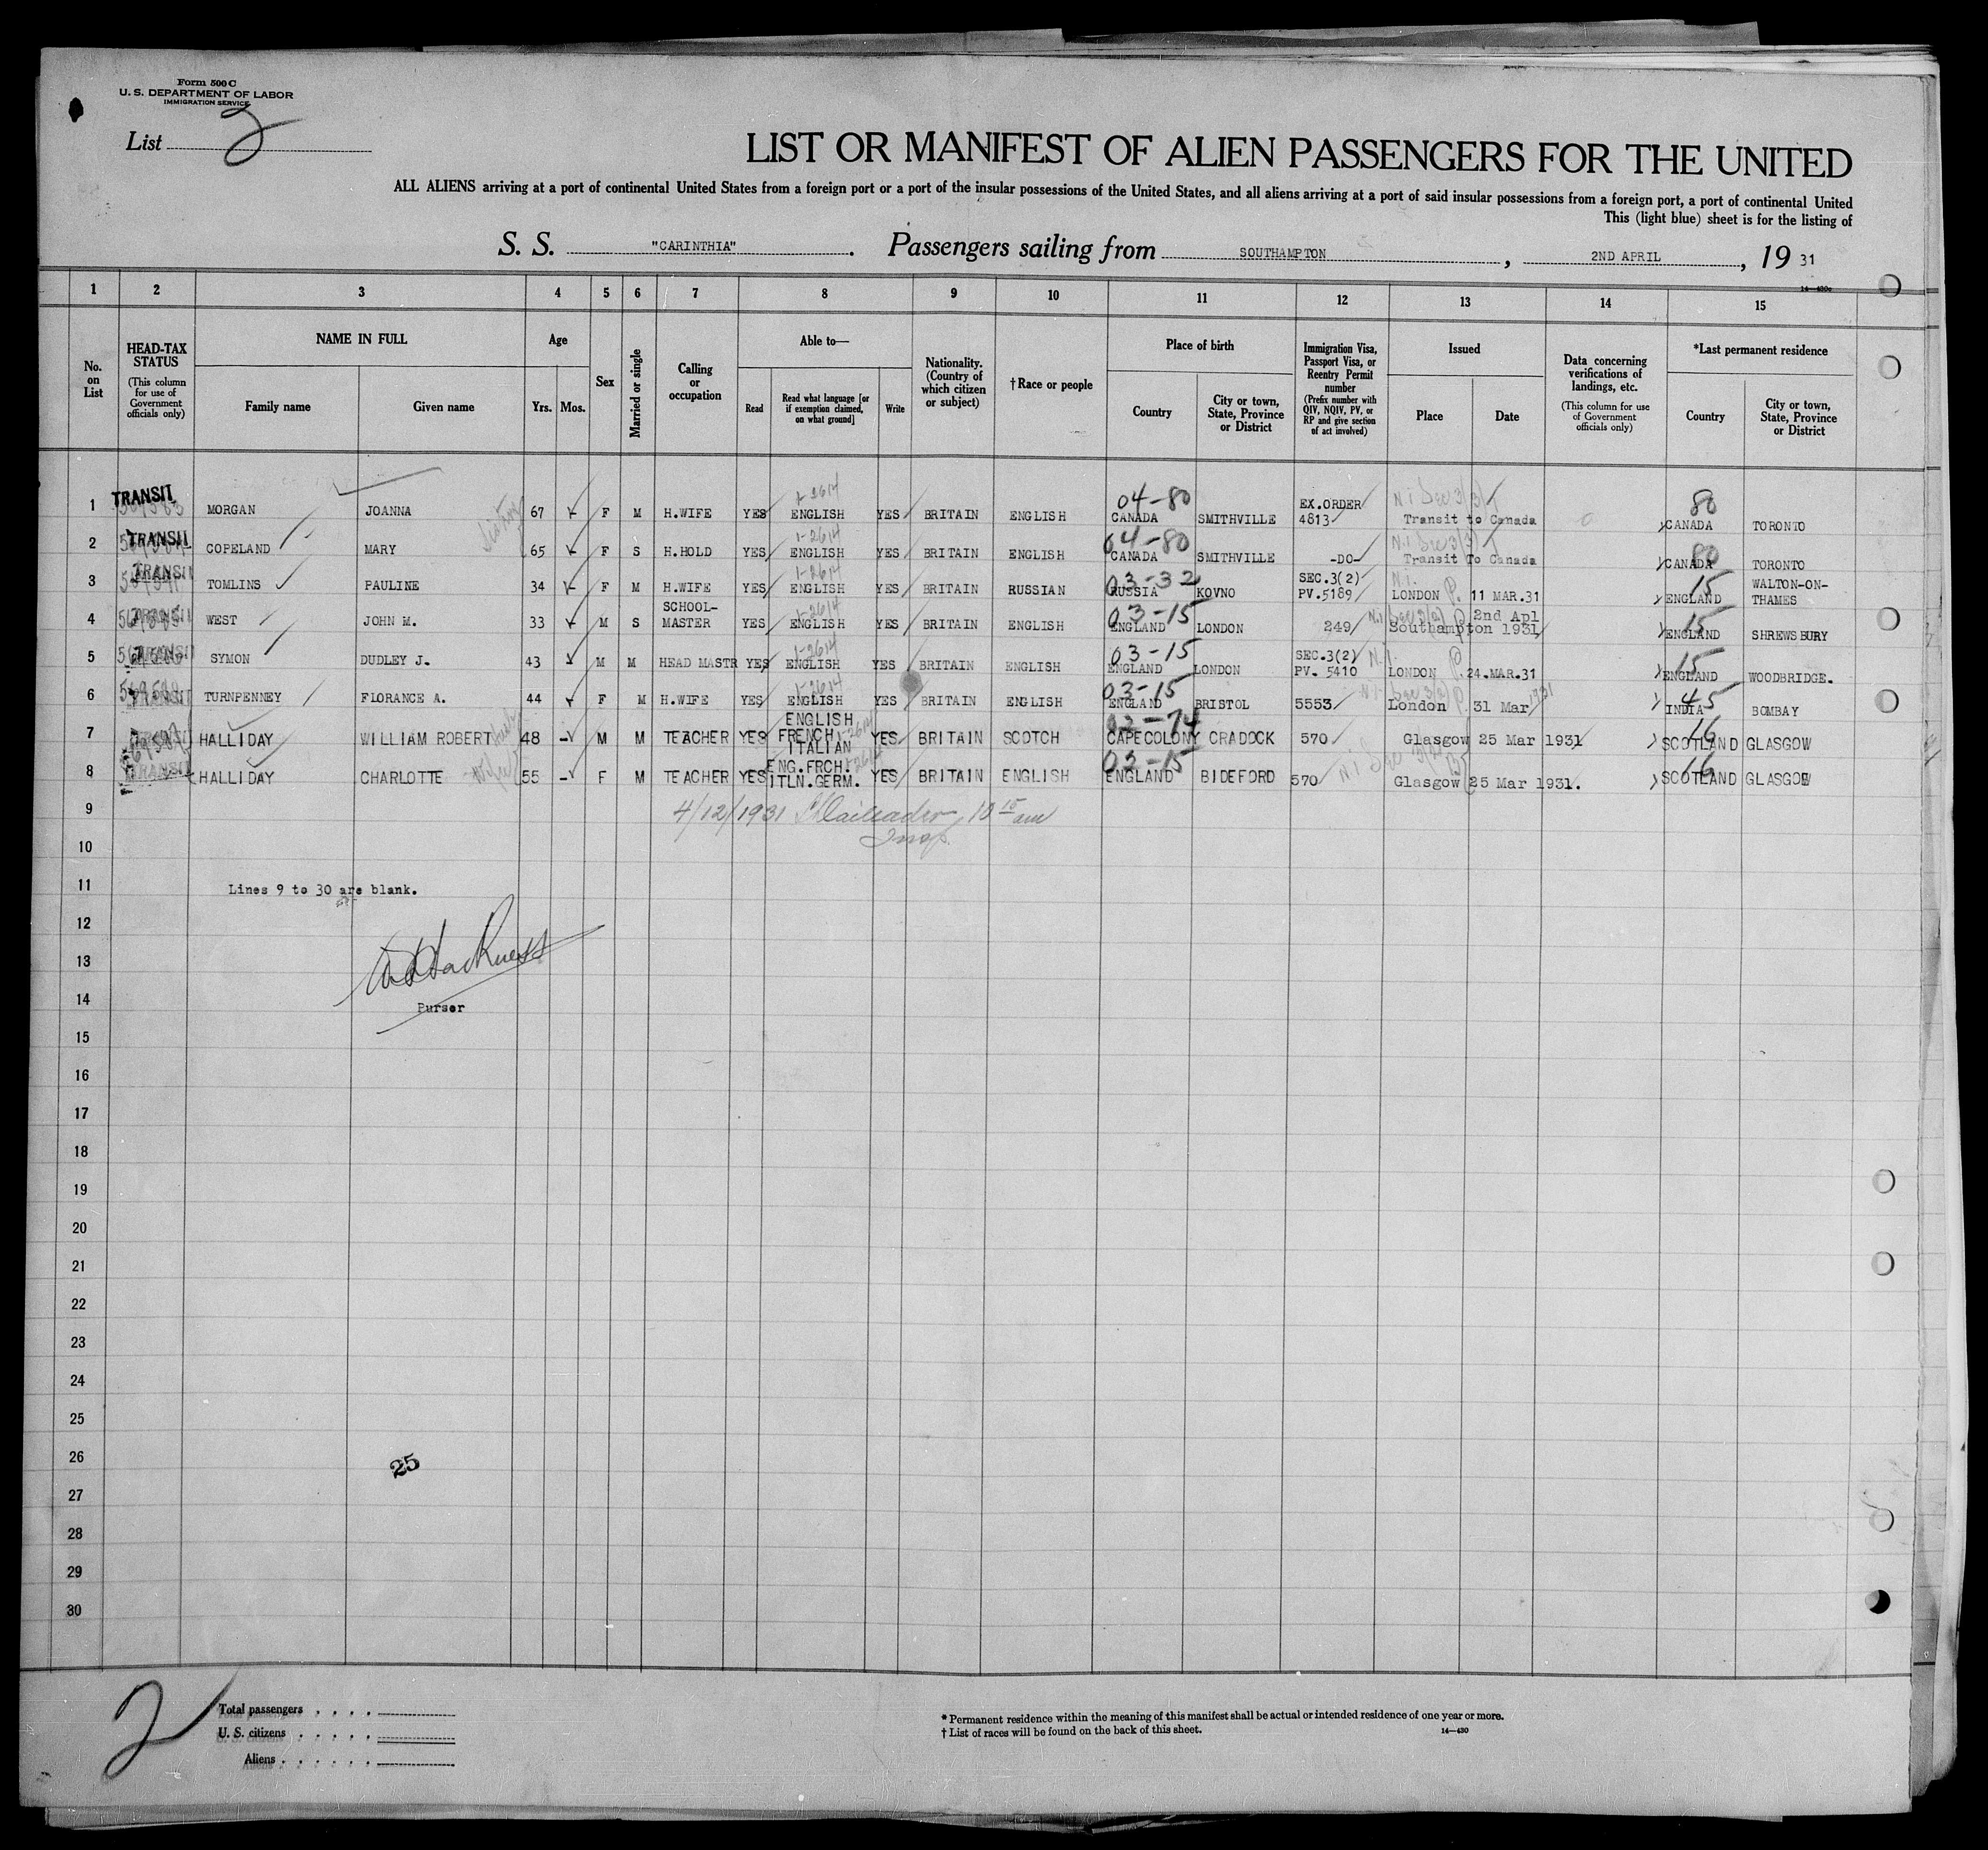 Form 500 C
U. S. DEPARTMENT OF LABOR
IMMIGRATION SERVICE
List 2
LIST OR MANIFEST OF ALIEN PASSENGERS FOR THE UNITED
ALL ALIENS arriving at a port of continental United States from a foreign port or a port of the insular possessions of the United States, and all aliens arriving at a port of said insular possessions from a foreign port, a port of continental United
This (light blue) sheet is for the listing of
S. S. "CARINTHIA". Passengers sailing from SOUTHAMPTON, 2ND APRIL, 19 31
14—430c
1 2 3 4 5 6 7 8 9 10 11 12 13 14 15
No. on List
HEAD-TAX STATUS (This column for use of Government officials only)
NAME IN FULL Family name Given name
Age Yrs. Mos.
Sex
Married or single
Calling or occupation
Able to— Read Read what language [or if exemption claimed, on what ground] Write
Nationality. (Country of which citizen or subject)
†Race or people
Place of birth Country City or town, State, Province or District
Immigration Visa, Passport Visa, or Reentry Permit number (Prefix number with QIV, NQIV, PV, or RP and give section of act involved)
Issued Place Date
Data concerning verifications of landings, etc. (This column for use of Government officials only)
*Last permanent residence Country City or town, State, Province or District
1 TRANSIT MORGAN JOANNA 67 F M H.WIFE YES 1-2614 ENGLISH YES BRITAIN ENGLISH 04-80 CANADA SMITHVILLE EX.ORDER 4813 Transit to Canada 80 CANADA TORONTO
2 TRANSIT COPELAND MARY 65 F S H.HOLD YES 1-2614 ENGLISH YES BRITAIN ENGLISH 04-80 CANADA SMITHVILLE -DO- Transit To Canada 80 CANADA TORONTO
3 TRANSIT TOMLINS PAULINE 34 F M H.WIFE YES 1-2614 ENGLISH YES BRITAIN RUSSIAN 03-32 RUSSIA KOVNO SEC.3(2) PV.5189 LONDON 11 MAR.31 15 ENGLAND WALTON-ON-THAMES
4 TRANSIT WEST JOHN M. 33 M S SCHOOL-MASTER YES 1-2614 ENGLISH YES BRITAIN ENGLISH 03-15 ENGLAND LONDON 249 Southampton 2nd Apl 1931 15 ENGLAND SHREWSBURY
5 TRANSIT SYMON DUDLEY J. 43 M M HEAD MASTR YES 1-2614 ENGLISH YES BRITAIN ENGLISH 03-15 ENGLAND LONDON SEC.3(2) PV. 5410 LONDON 24.MAR.31 15 ENGLAND WOODBRIDGE.
6 TRANSIT TURNPENNEY FLORANCE A. 44 F M H.WIFE YES 1-2614 ENGLISH YES BRITAIN ENGLISH 03-15 ENGLAND BRISTOL 5553 London 31 Mar 1931 45 INDIA BOMBAY
7 HALLIDAY WILLIAM ROBERT 48 - M M TEACHER YES ENGLISH FRENCH ITALIAN YES BRITAIN SCOTCH 03-74 CAPECOLONY CRADOCK 570 Glasgow 25 Mar 1931 16 SCOTLAND GLASGOW
8 TRANSIT HALLIDAY CHARLOTTE 55 - F M TEACHER YES ENG.FRCH. ITLN.GERM. YES BRITAIN ENGLISH 03-15 ENGLAND BIDEFORD 570 Glasgow 25 Mar 1931. 16 SCOTLAND GLASGOW
9 4/12/1931 10 15 am
Insp.
10
11 Lines 9 to 30 are blank.
12
13
14 Purser
15
16
17
18
19
20
21
22
23
24
25
26 25
27
28
29
30
2
Total passengers
U. S. citizens
Aliens
* Permanent residence within the meaning of this manifest shall be actual or intended residence of one year or more.
† List of races will be found on the back of this sheet.
14—430